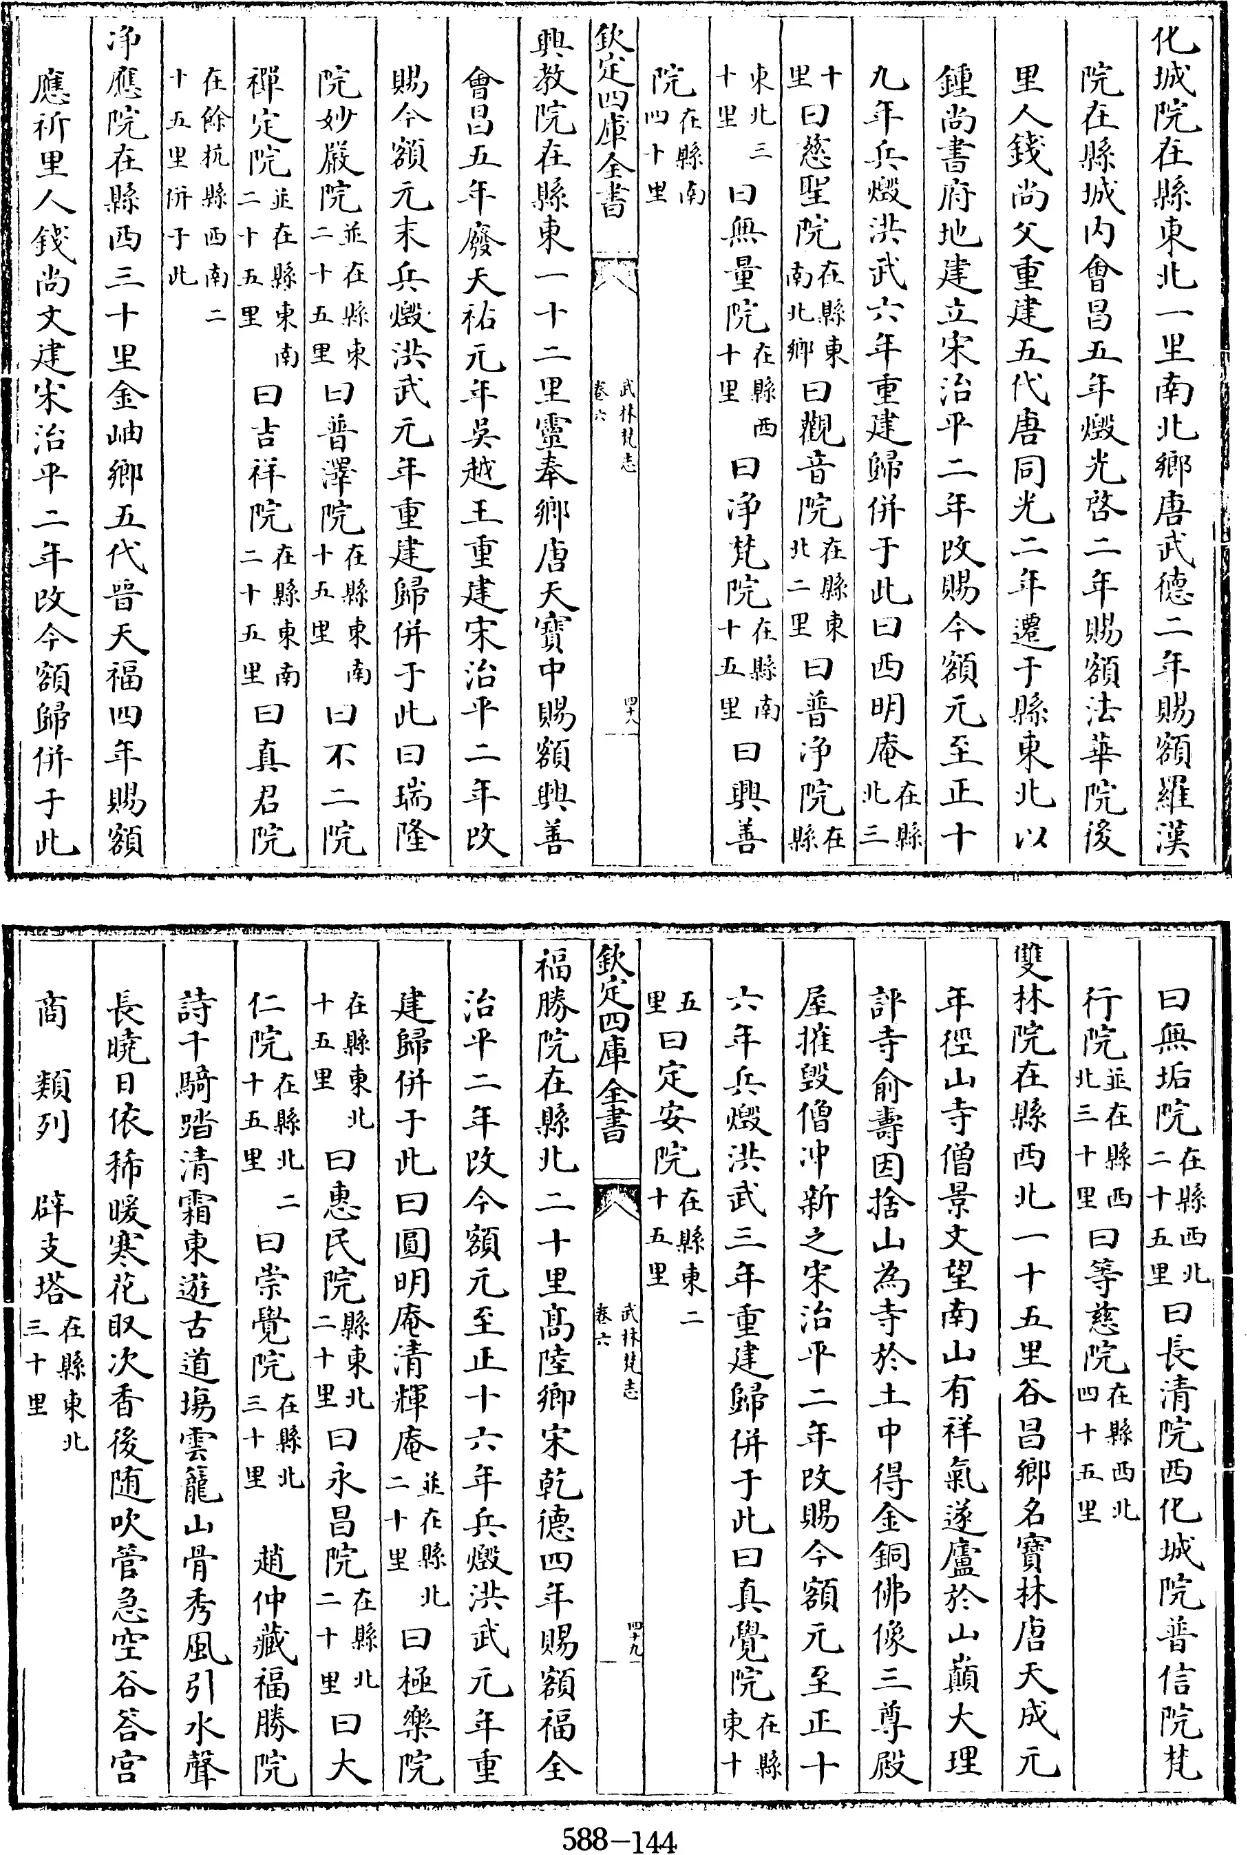 化城院在縣東北一里南北鄉唐武德二年賜額羅漢
院在縣城内會昌五年燬光啓二年賜額法華院後
里人錢尚父重建五代唐同光二年遷于縣東北以
鍾尚書府地建立宋治平二年改賜今額元至正十
九年兵燬洪武六年重建歸併于此曰西明庵在縣北三
十里曰慈聖院在縣東南北鄉曰觀音院在縣東北二里曰普淨院在縣
東北三十里曰無量院在縣西十里曰淨梵院在縣南十五里曰興善
院在縣南四十里
欽定四庫全書
武林梵志
卷六
四十八
興教院在縣東一十二里靈奉鄉唐天寶中賜額興善
會昌五年廢天祐元年吳越王重建宋治平二年改
賜今額元末兵燬洪武元年重建歸併于此曰瑞隆
院妙嚴院並在縣東二十五里曰普澤院在縣東南十五里曰不二院
禪定院並在縣東南二十五里曰吉祥院在縣東南二十五里曰真君院
在餘杭縣西南二十五里併于此
淨應院在縣西三十里金岫鄉五代晉天福四年賜額
應祈里人錢尚文建宋治平二年改今額歸併于此
曰無垢院在縣西北二十五里曰長清院西化城院普信院梵
行院並在縣西北三十里曰等慈院在縣西北四十五里
雙林院在縣西北一十五里谷昌鄉名寶林唐天成元
年徑山寺僧景文望南山有祥氣遂廬於山巔大理
評寺俞壽因捨山為寺於土中得金銅佛像三尊殿
屋摧毀僧冲新之宋治平二年改賜今額元至正十
六年兵燬洪武三年重建歸併于此曰真覺院在縣東十
五里曰定安院在縣東二十五里
欽定四庫全書
武林梵志
卷六
四十九
福勝院在縣北二十里高陸鄉宋乾德四年賜額福全
治平二年改今額元至正十六年兵燬洪武元年重
建歸併于此曰圓明庵清輝庵並在縣北二十里曰極樂院
在縣東北十五里曰惠民院縣東北二十里曰永昌院在縣北二十里曰大
仁院在縣北二十五里曰崇覺院在縣北三十里 趙仲藏福勝院
詩千騎踏清霜東遊古道塲雲籠山骨秀風引水聲
長曉日依稀暖寒花取次香後随吹管急空谷荅宫
商 類列 辟支塔在縣東北三十里
588-144